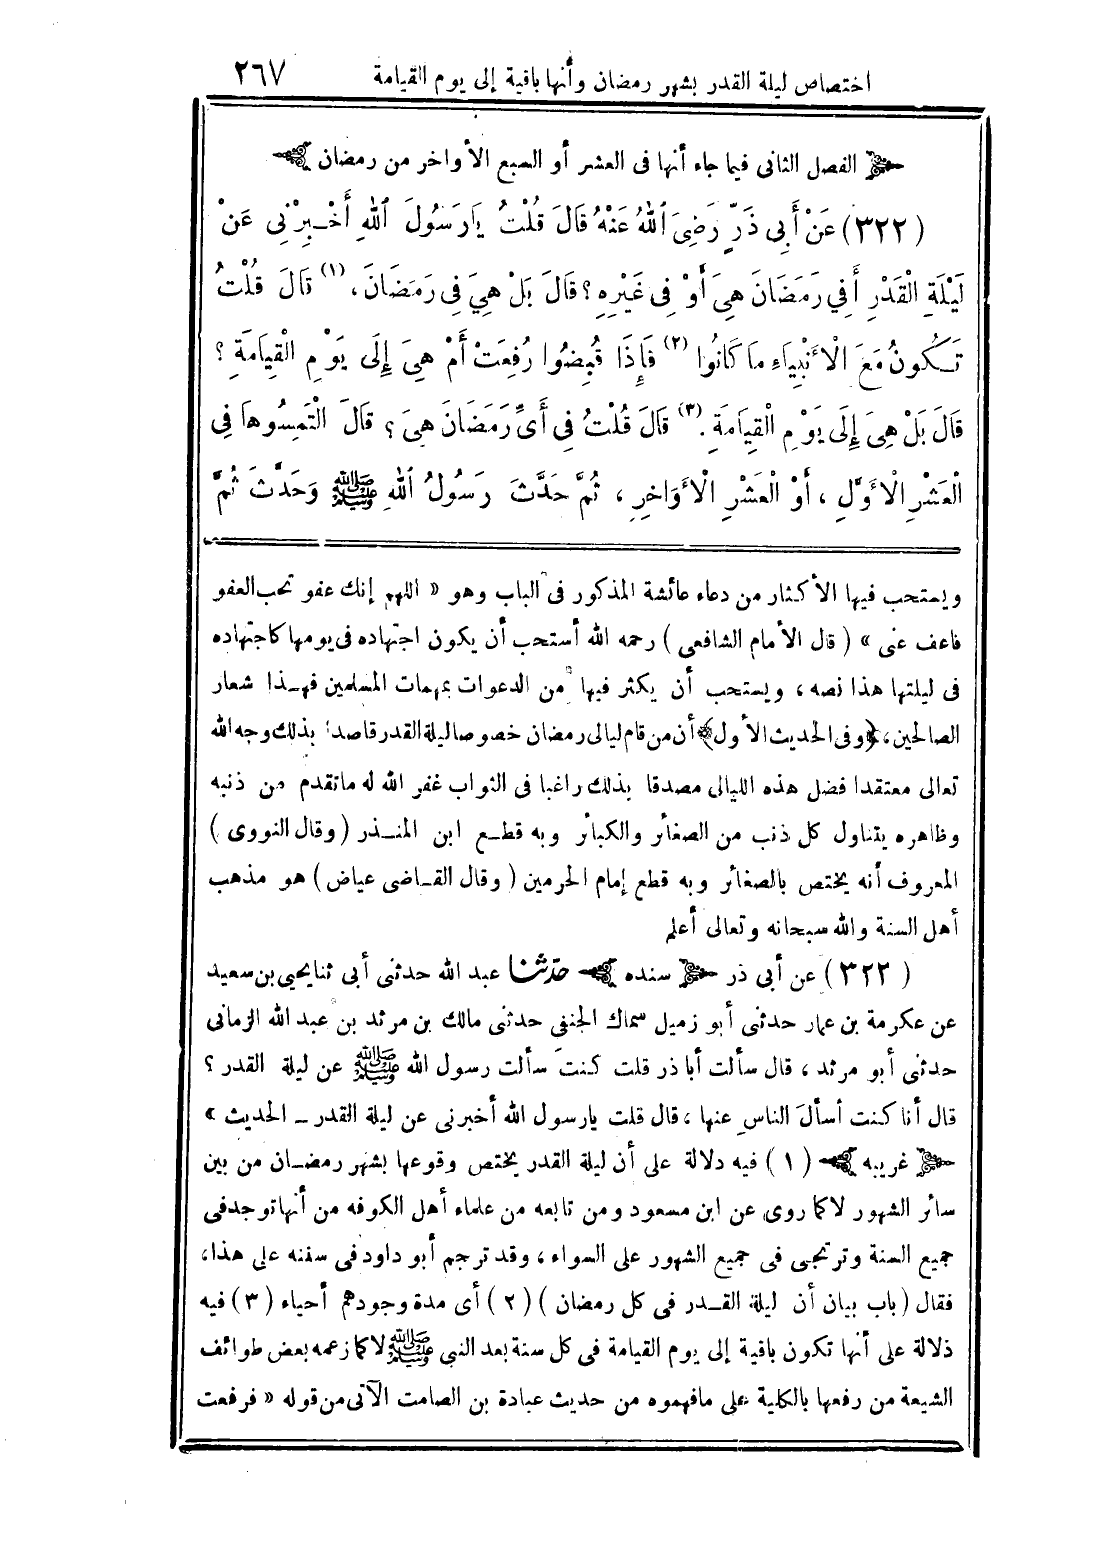 اختصاص ليلة القدر بشهر رمضان وأنها باقية إلى يوم القيامة ٢٦٧
الفصل الثانى فيما جاء أنها فى العشر أو السبع الأواخر من رمضان
(٣٢٢) عَنْ أَبِي ذَرٍّ رَضِيَ اللهُ عَنْهُ قَالَ قُلْتُ يَارَسُولَ اللهِ أَخْبِرْنِى عَنْ
لَيْلَةِ الْقَدْرِ أَفِي رَمَضَانَ هِيَ أَوْ فِى غَيْرِهِ؟ قَالَ بَلْ هِيَ فِى رَمَضَانَ، (١) قَالَ قُلْتُ
تَكُونُ مَعَ الْأَنْبِيَاءِ مَا كَانُوا (٢) فَإِذَا قُبِضُوا رُفِعَتْ أَمْ هِيَ إِلَى يَوْمِ الْقِيَامَةِ؟
قَالَ بَلْ هِيَ إِلَى يَوْمِ الْقِيَامَةِ. (٣) قَالَ قُلْتُ فِى أَىِّ رَمَضَانَ هِيَ؟ قَالَ الْتَمِسُوهَا فِى
الْعَشْرِ الْأَوَّلِ، أَوْ الْعَشْرِ الْأَوَاخِرِ، ثُمَّ حَدَّثَ رَسُولُ اللهِ ﷺ وَحَدَّثَ ثُمَّ
ويستحب فيها الأكثار من دعاء عائشة المذكور فى الباب وهو « اللهم إنك عفو تحب العفو
فاعف عنى » (قال الأمام الشافعى) رحمه الله أستحب أن يكون اجتهاده فى يومها كاجتهاده
فى ليلتها هذا نصه، ويستحب أن يكثر فيها من الدعوات بمهمات المسلمين فهـذا شعار
الصالحين، ﴿وفى الحديث الأول﴾ أن من قام ليالى رمضان خصوصا ليلة القدر قاصدا بذلك وجه الله
تعالى معتقدا فضل هذه الليالى مصدقا بذلك راغبا فى الثواب غفر الله له ماتقدم من ذنبه
وظاهره يتناول كل ذنب من الصغائر والكبائر وبه قطـع ابن المنـذر (وقال النووى)
المعروف أنه يختص بالصغائر وبه قطع إمام الحرمين (وقال القـاضى عياض) هو مذهب
أهل السنة والله سبحانه وتعالى أعلم
(٣٢٢) عن أبي ذر سنده حدّثنا عبد الله حدثنى أبى ثنا يحيى بن سعيد
عن عكرمة بن عمار حدثنى أبو زميل سماك الحنفى حدثنى مالك بن مرثد بن عبد الله الزمانى
حدثنى أبو مرثد، قال سألت أبا ذر قلت كنتَ سألت رسول الله ﷺ عن ليلة القدر؟
قال أنا كنت أسألَ الناسِ عنها، قال قلت يارسول الله أخبرنى عن ليلة القدر ـ الحديث »
غريبه (١) فيه دلالة على أن ليلة القدر يختص وقوعها بشهر رمضـان من بين
سائر الشهور لا كما روى عن ابن مسعود ومن تابعه من علماء أهل الكوفه من أنها توجد فى
جميع السنة وترتجى فى جميع الشهور على السواء، وقد ترجم أبو داود فى سننه على هذا،
فقال (باب بيان أن ليلة القـدر فى كل رمضان) (٢) أى مدة وجودهم أحياء (٣) فيه
دلالة على أنها تكون باقية إلى يوم القيامة فى كل سنة بعد النبى ﷺ لا كما زعمه بعض طوائف
الشيعة من رفعها بالكلية على مافهموه من حديث عبادة بن الصامت الآتى من قوله « فرفعت